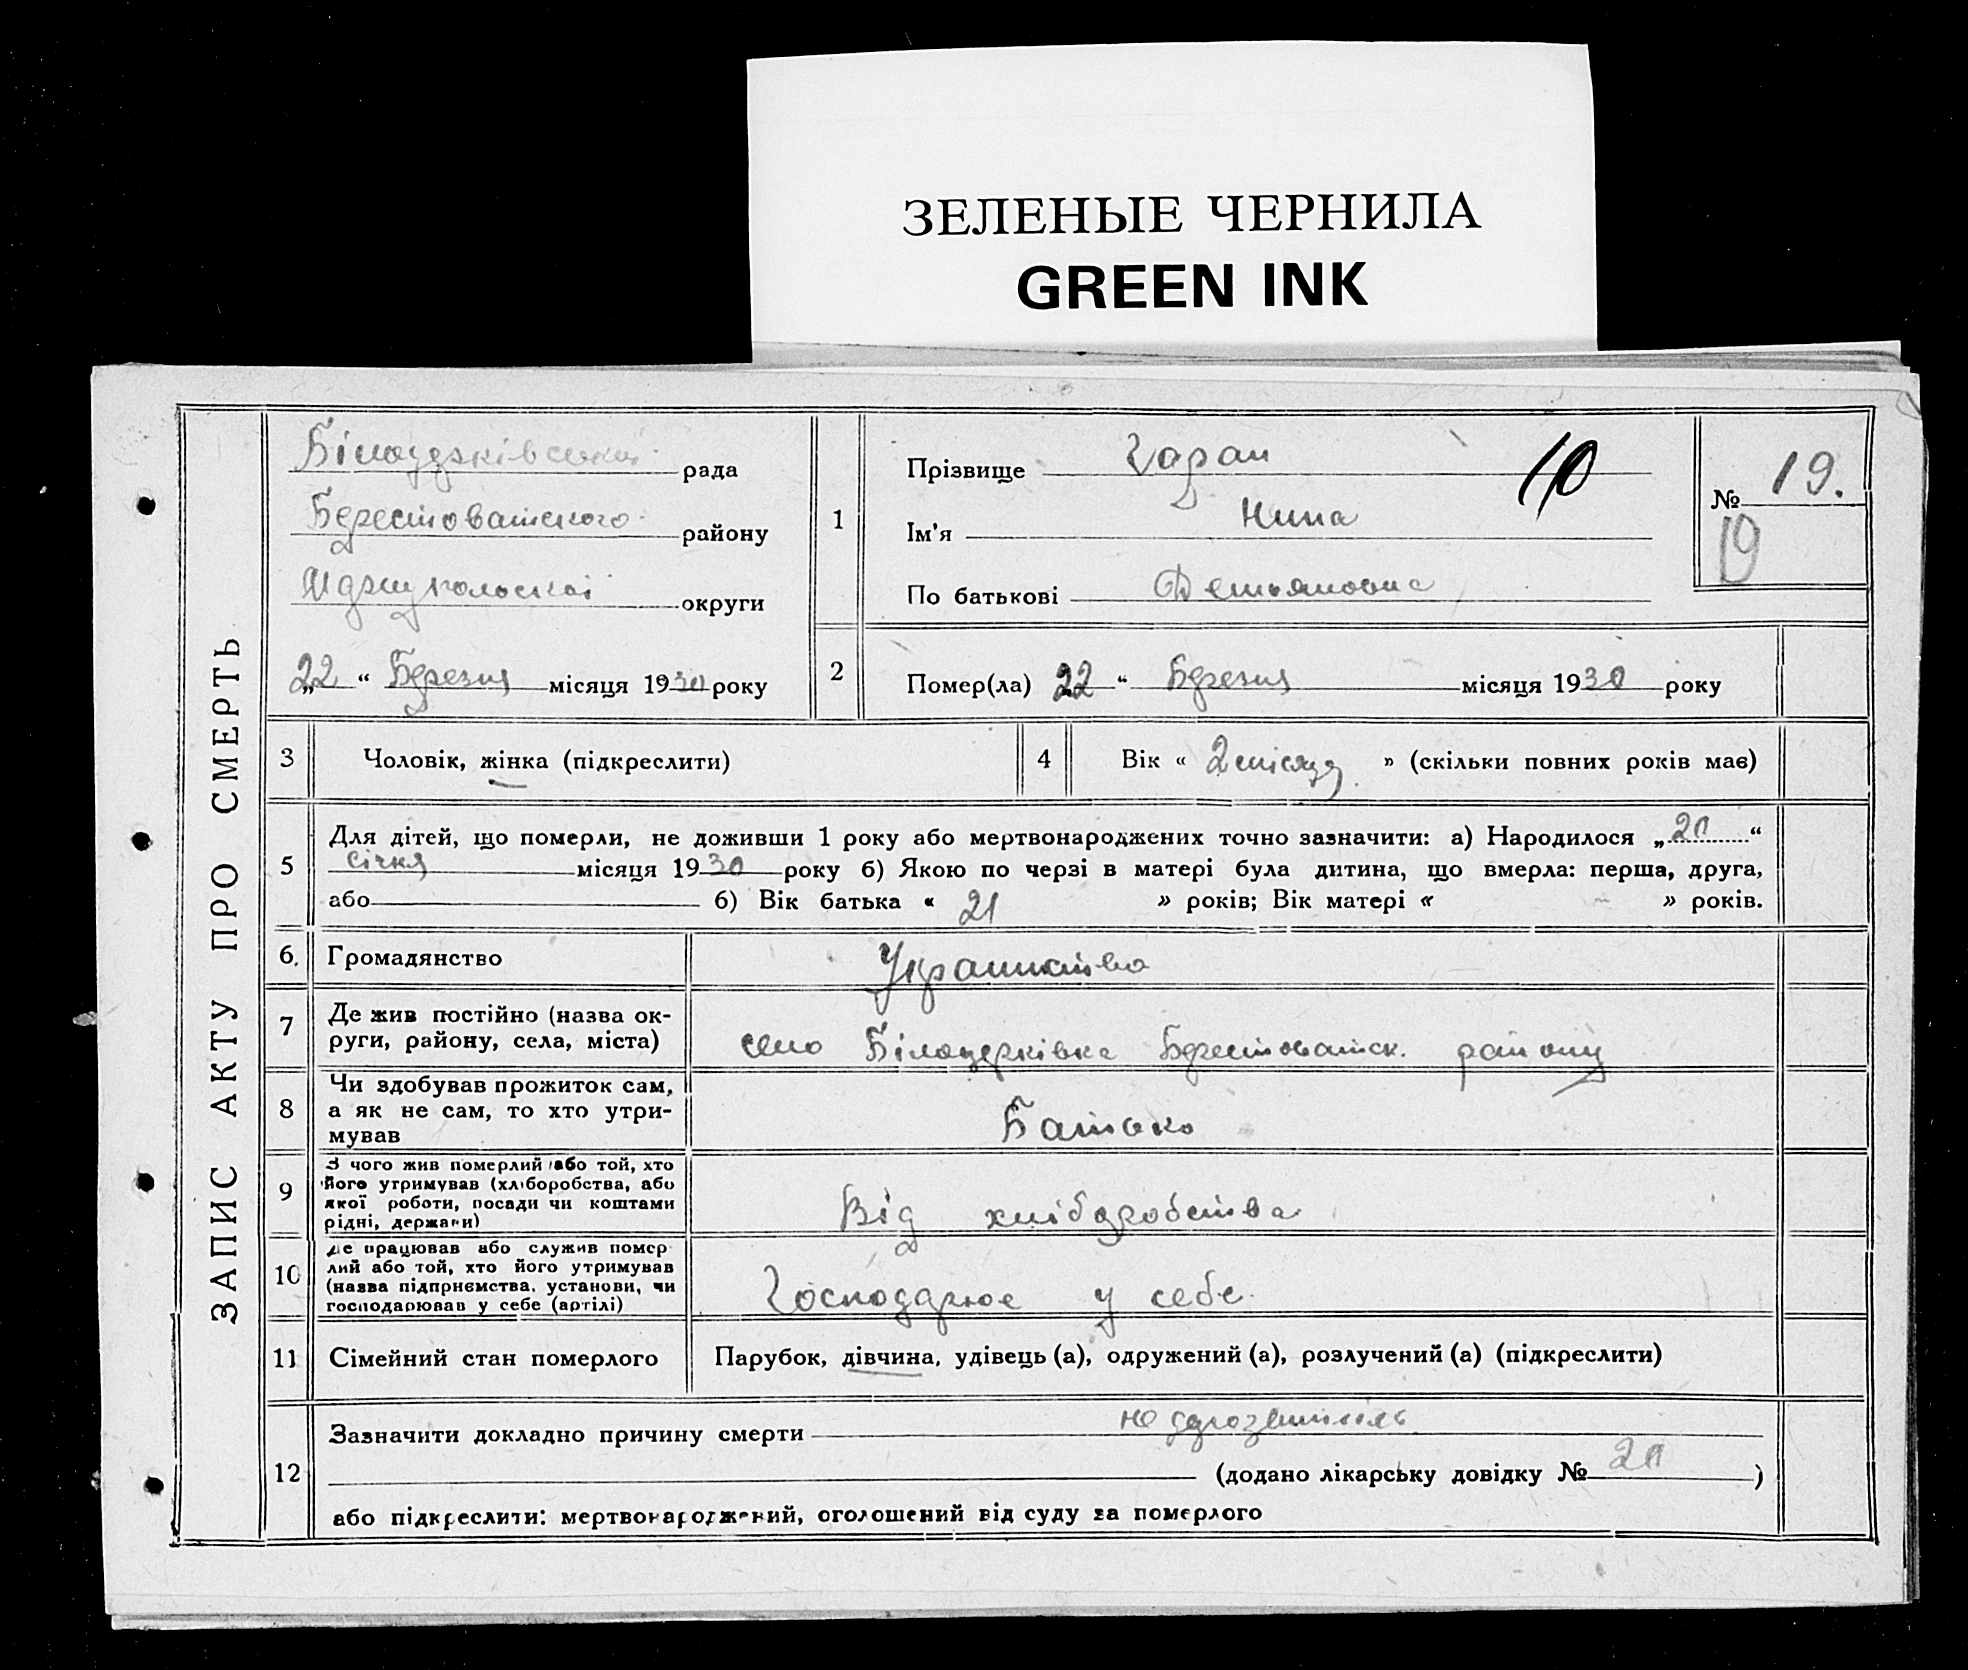 ЗЕЛЕНЫЕ ЧЕРНИЛА
GREEN INK
ЗАПИС АКТУ ПРО СМЕРТЬ
Білоцерківська рада
Берестоватського району
округи
„22“ Березня місяця 1930 року
1
Прізвище Гаран
10
Ім'я Нина
По батькові Демьяновна
№ 19.
19
2
Помер(ла) 22 “ Березня місяця 1930 року
3
Чоловік, жінка (підкреслити)
4
Вік « 2 місяця » (скільки повних років має)
5
Для дітей, що померли, не доживши 1 року або мертвонароджених точно зазначити: а) Народилося „20“
січня місяця 1930 року б) Якою по черзі в матері була дитина, що вмерла: перша, друга,
або б) Вік батька « 21 » років; Вік матері « » років.
6. Громадянство
7
Де жив постійно (назва ок-
руги, району, села, міста)
село Білоцерківка Берестоватск. району
8
Чи здобував прожиток сам,
а як не сам, то хто утри-
мував
Батько
9
З чого жив померлий або той, хто
його утримував (хліборобства, або
якої роботи, посади чи коштами
рідні, держави)
Від хліборобства
10
Де працював або служив помер
лий або той, хто його утримував
(назва підприємства, установи, чи
господарював у себе (артілі)
Господарює у себе
11 Сімейний стан померлого
Парубок, дівчина, удівець (а), одружений (а), розлучений (а) (підкреслити)
12
Зазначити докладно причину смерти
(додано лікарську довідку № 20 )
або підкреслити: мертвонароджений, оголошений від суду за померлого